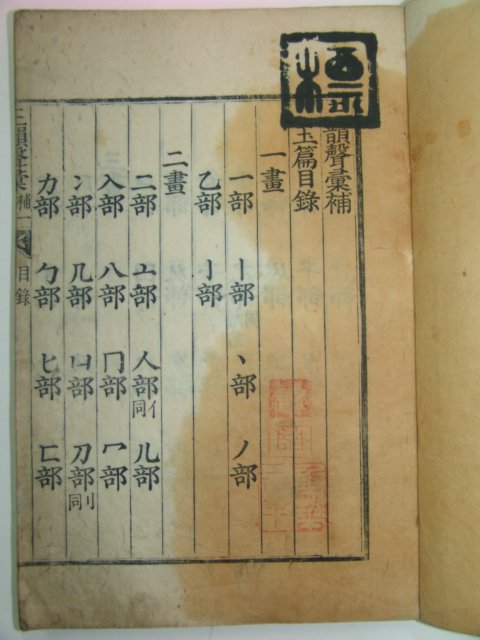 韻聲彙補
玉篇目錄
一畫
一部 丨部 丶部 丿部
乙部 亅部
二畫
二部 亠部 人部 亻同 儿部
入部 八部 冂部 冖部
冫部 几部 凵部 刀部 刂同
力部 勹部 匕部 匚部
三韻聲彙 補 目錄